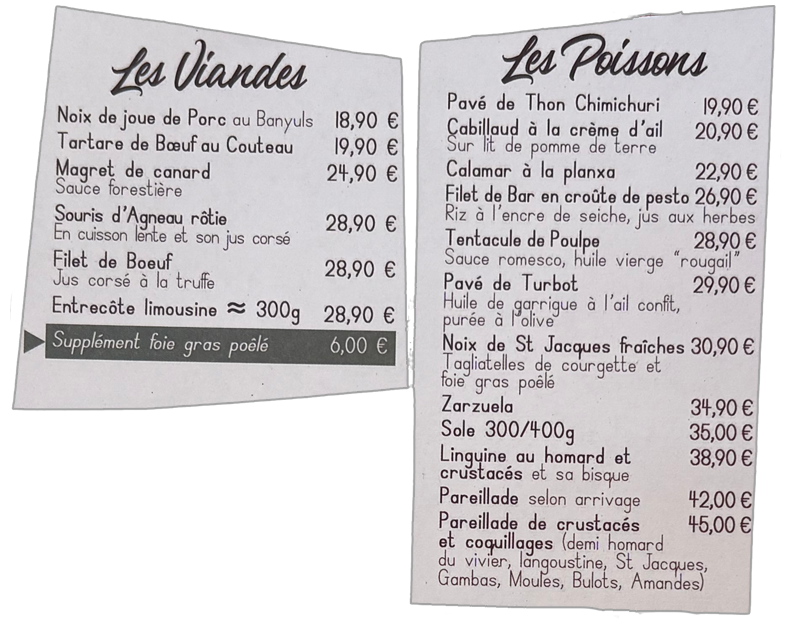 Les Viandes
Noix de joue de Porc au Banyuls 18,90 €
Tartare de Bœuf au Couteau 19,90 €
Magret de canard 24,90 €
Sauce forestière
Souris d'Agneau rôtie 28,90 €
En cuisson lente et son jus corsé
Filet de Boeuf 28,90 €
Jus corsé à la truffe
Entrecôte limousine ≈ 300g 28,90 €
Supplément foie gras poêlé 6,00 €
Les Poissons
Pavé de Thon Chimichuri 19,90 €
Cabillaud à la crème d'ail 20,90 €
Sur lit de pomme de terre
Calamar à la planxa 22,90 €
Filet de Bar en croûte de pesto 26,90 €
Riz à l'encre de seiche, jus aux herbes
Tentacule de Poulpe 28,90 €
Sauce romesco, huile vierge "rougail"
Pavé de Turbot 29,90 €
Huile de garrigue à l'ail confit,
purée à l'olive
Noix de St Jacques fraîches 30,90 €
Tagliatelles de courgette et
foie gras poêlé
Zarzuela 34,90 €
Sole 300/400g 35,00 €
Linguine au homard et 38,90 €
crustacés et sa bisque
Pareillade selon arrivage 42,00 €
Pareillade de crustacés 45,00 €
et coquillages (demi homard
du vivier, langoustine, St Jacques,
Gambas, Moules, Bulots, Amandes)